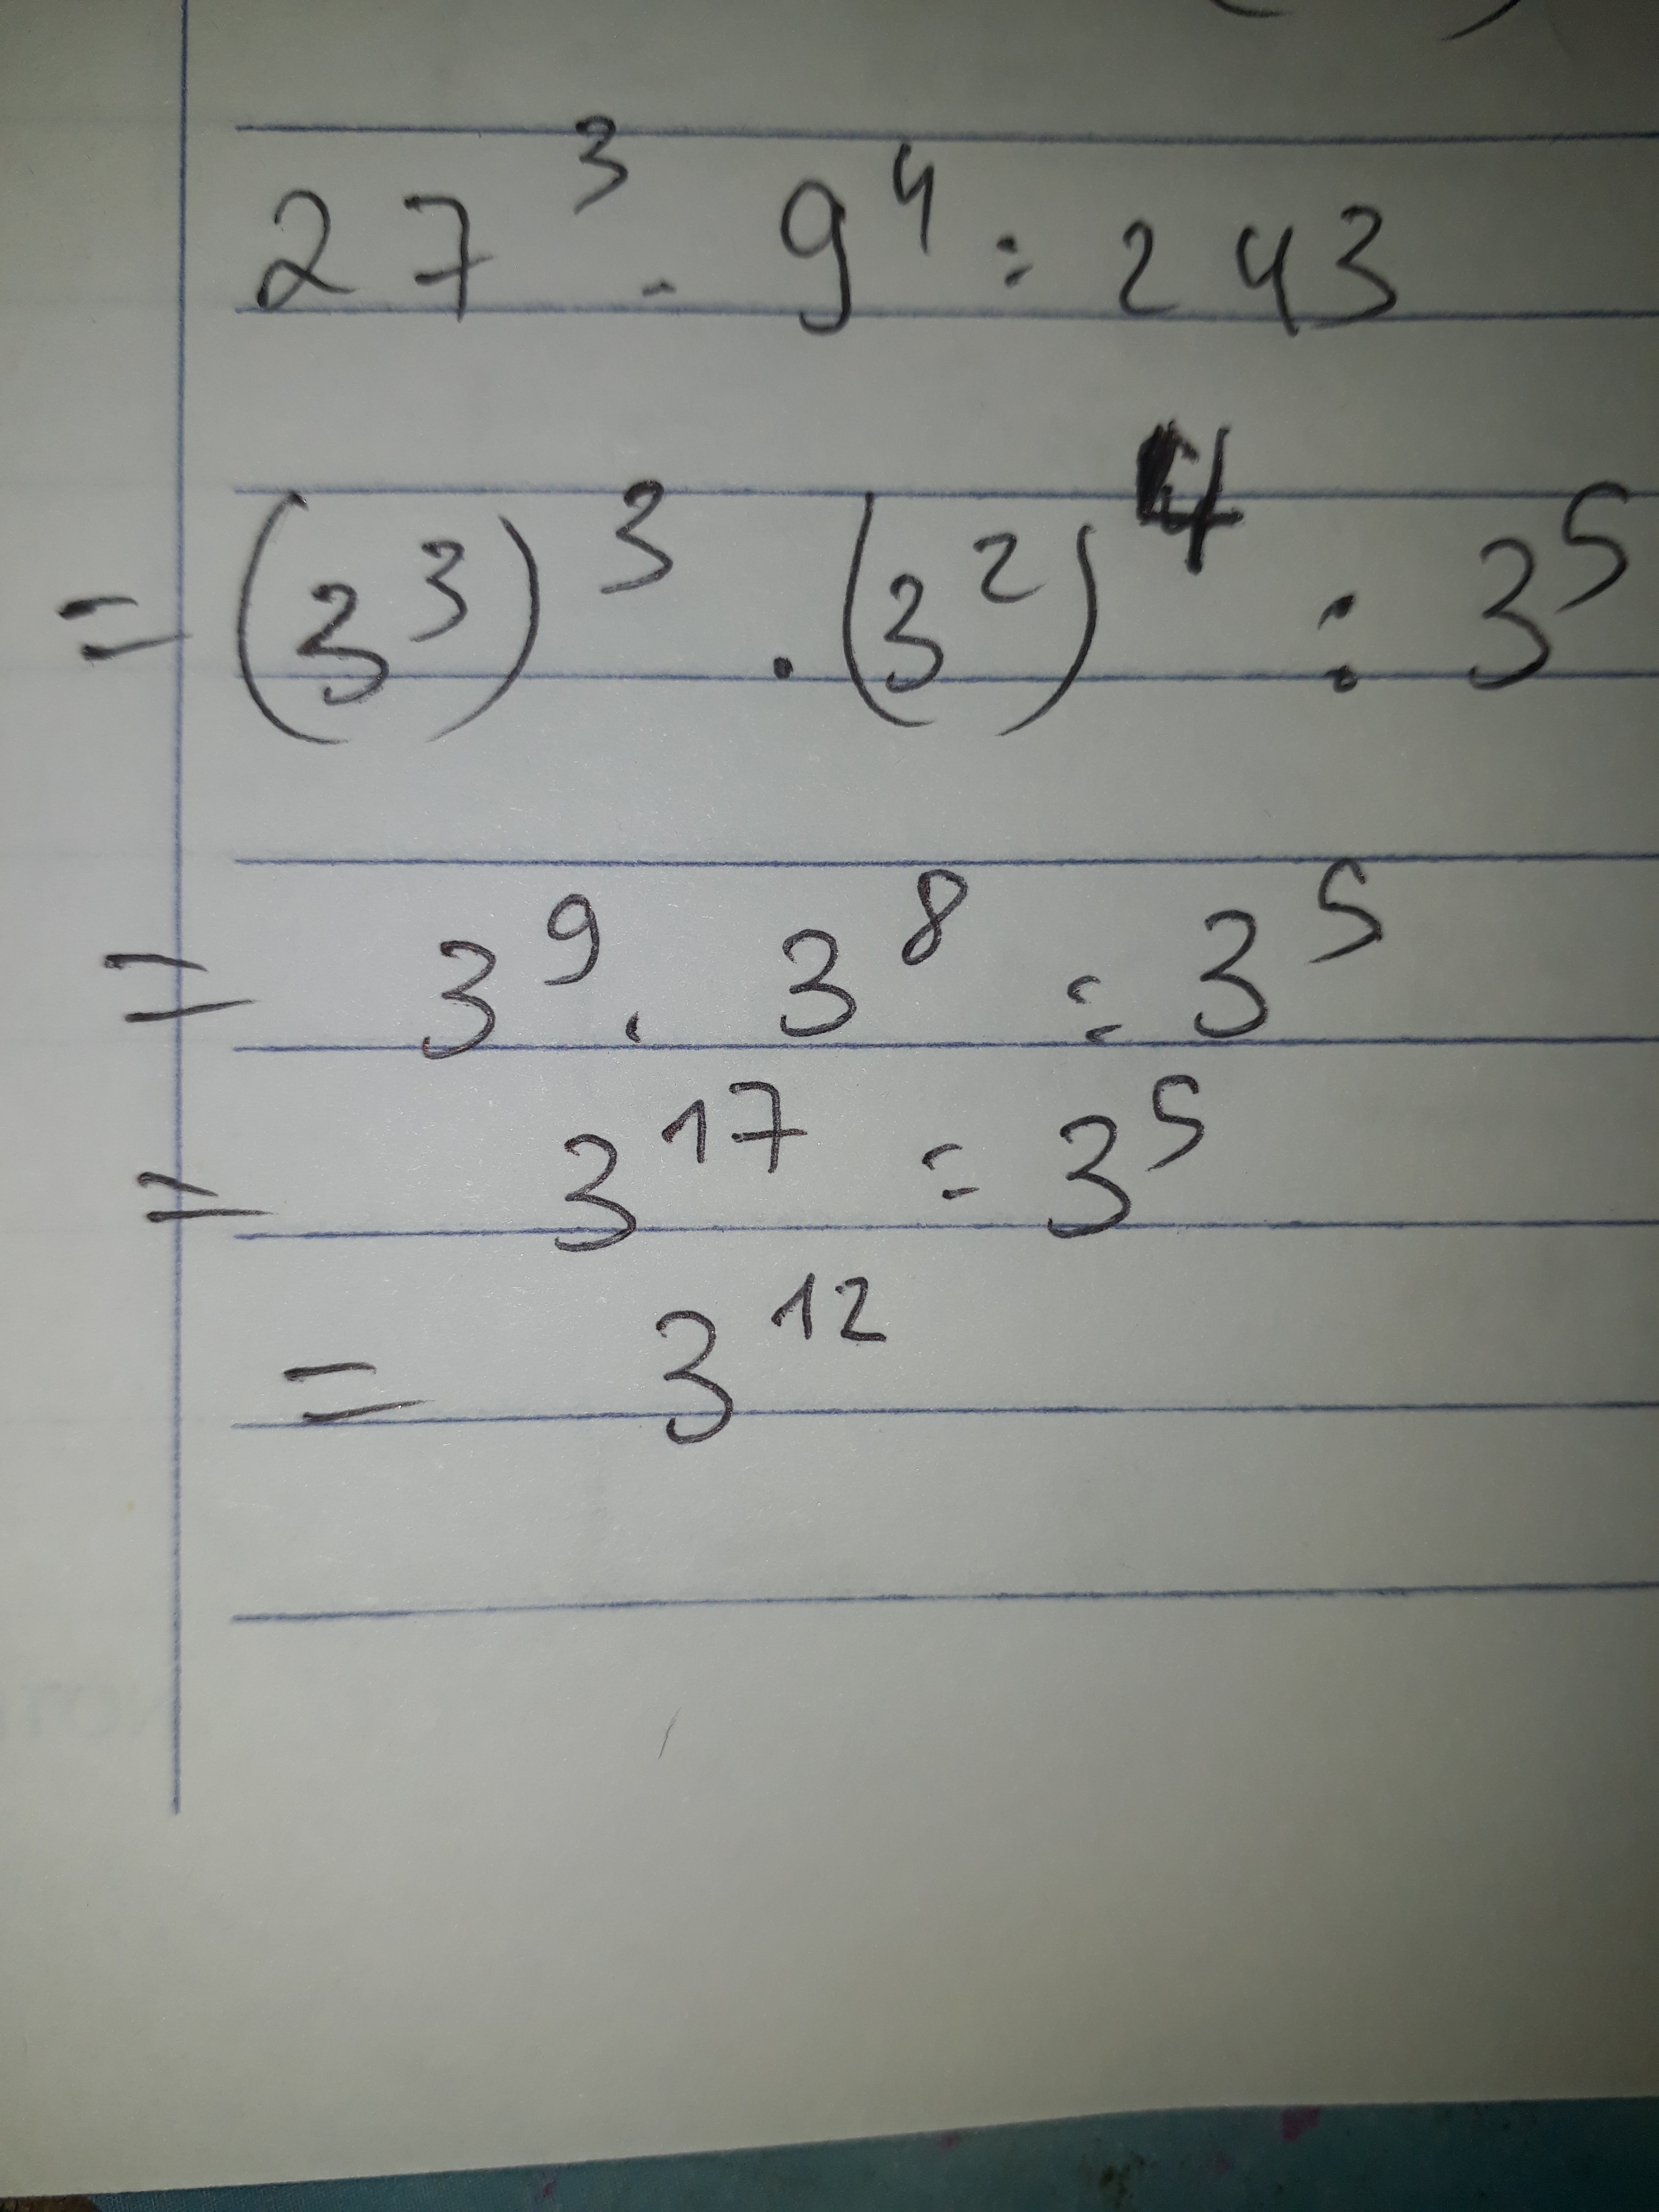 27³ . 9⁴ : 243
= (3³)³ . (3²)⁴ : 3⁵
= 3⁹ . 3⁸ : 3⁵
= 3¹⁷ : 3⁵
= 3¹²